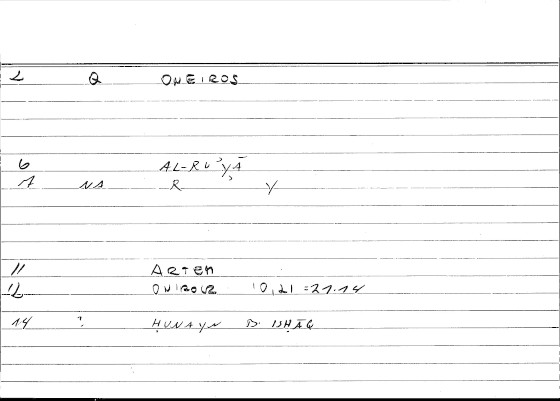 1 Q ONEIROS
6 AL-RUʾYĀ
7 NA R ʾ Y
11 ARTEM
12 ONIROCR 10,21 = 21.14
14 : ḤUNAYN B. ISḤĀQ